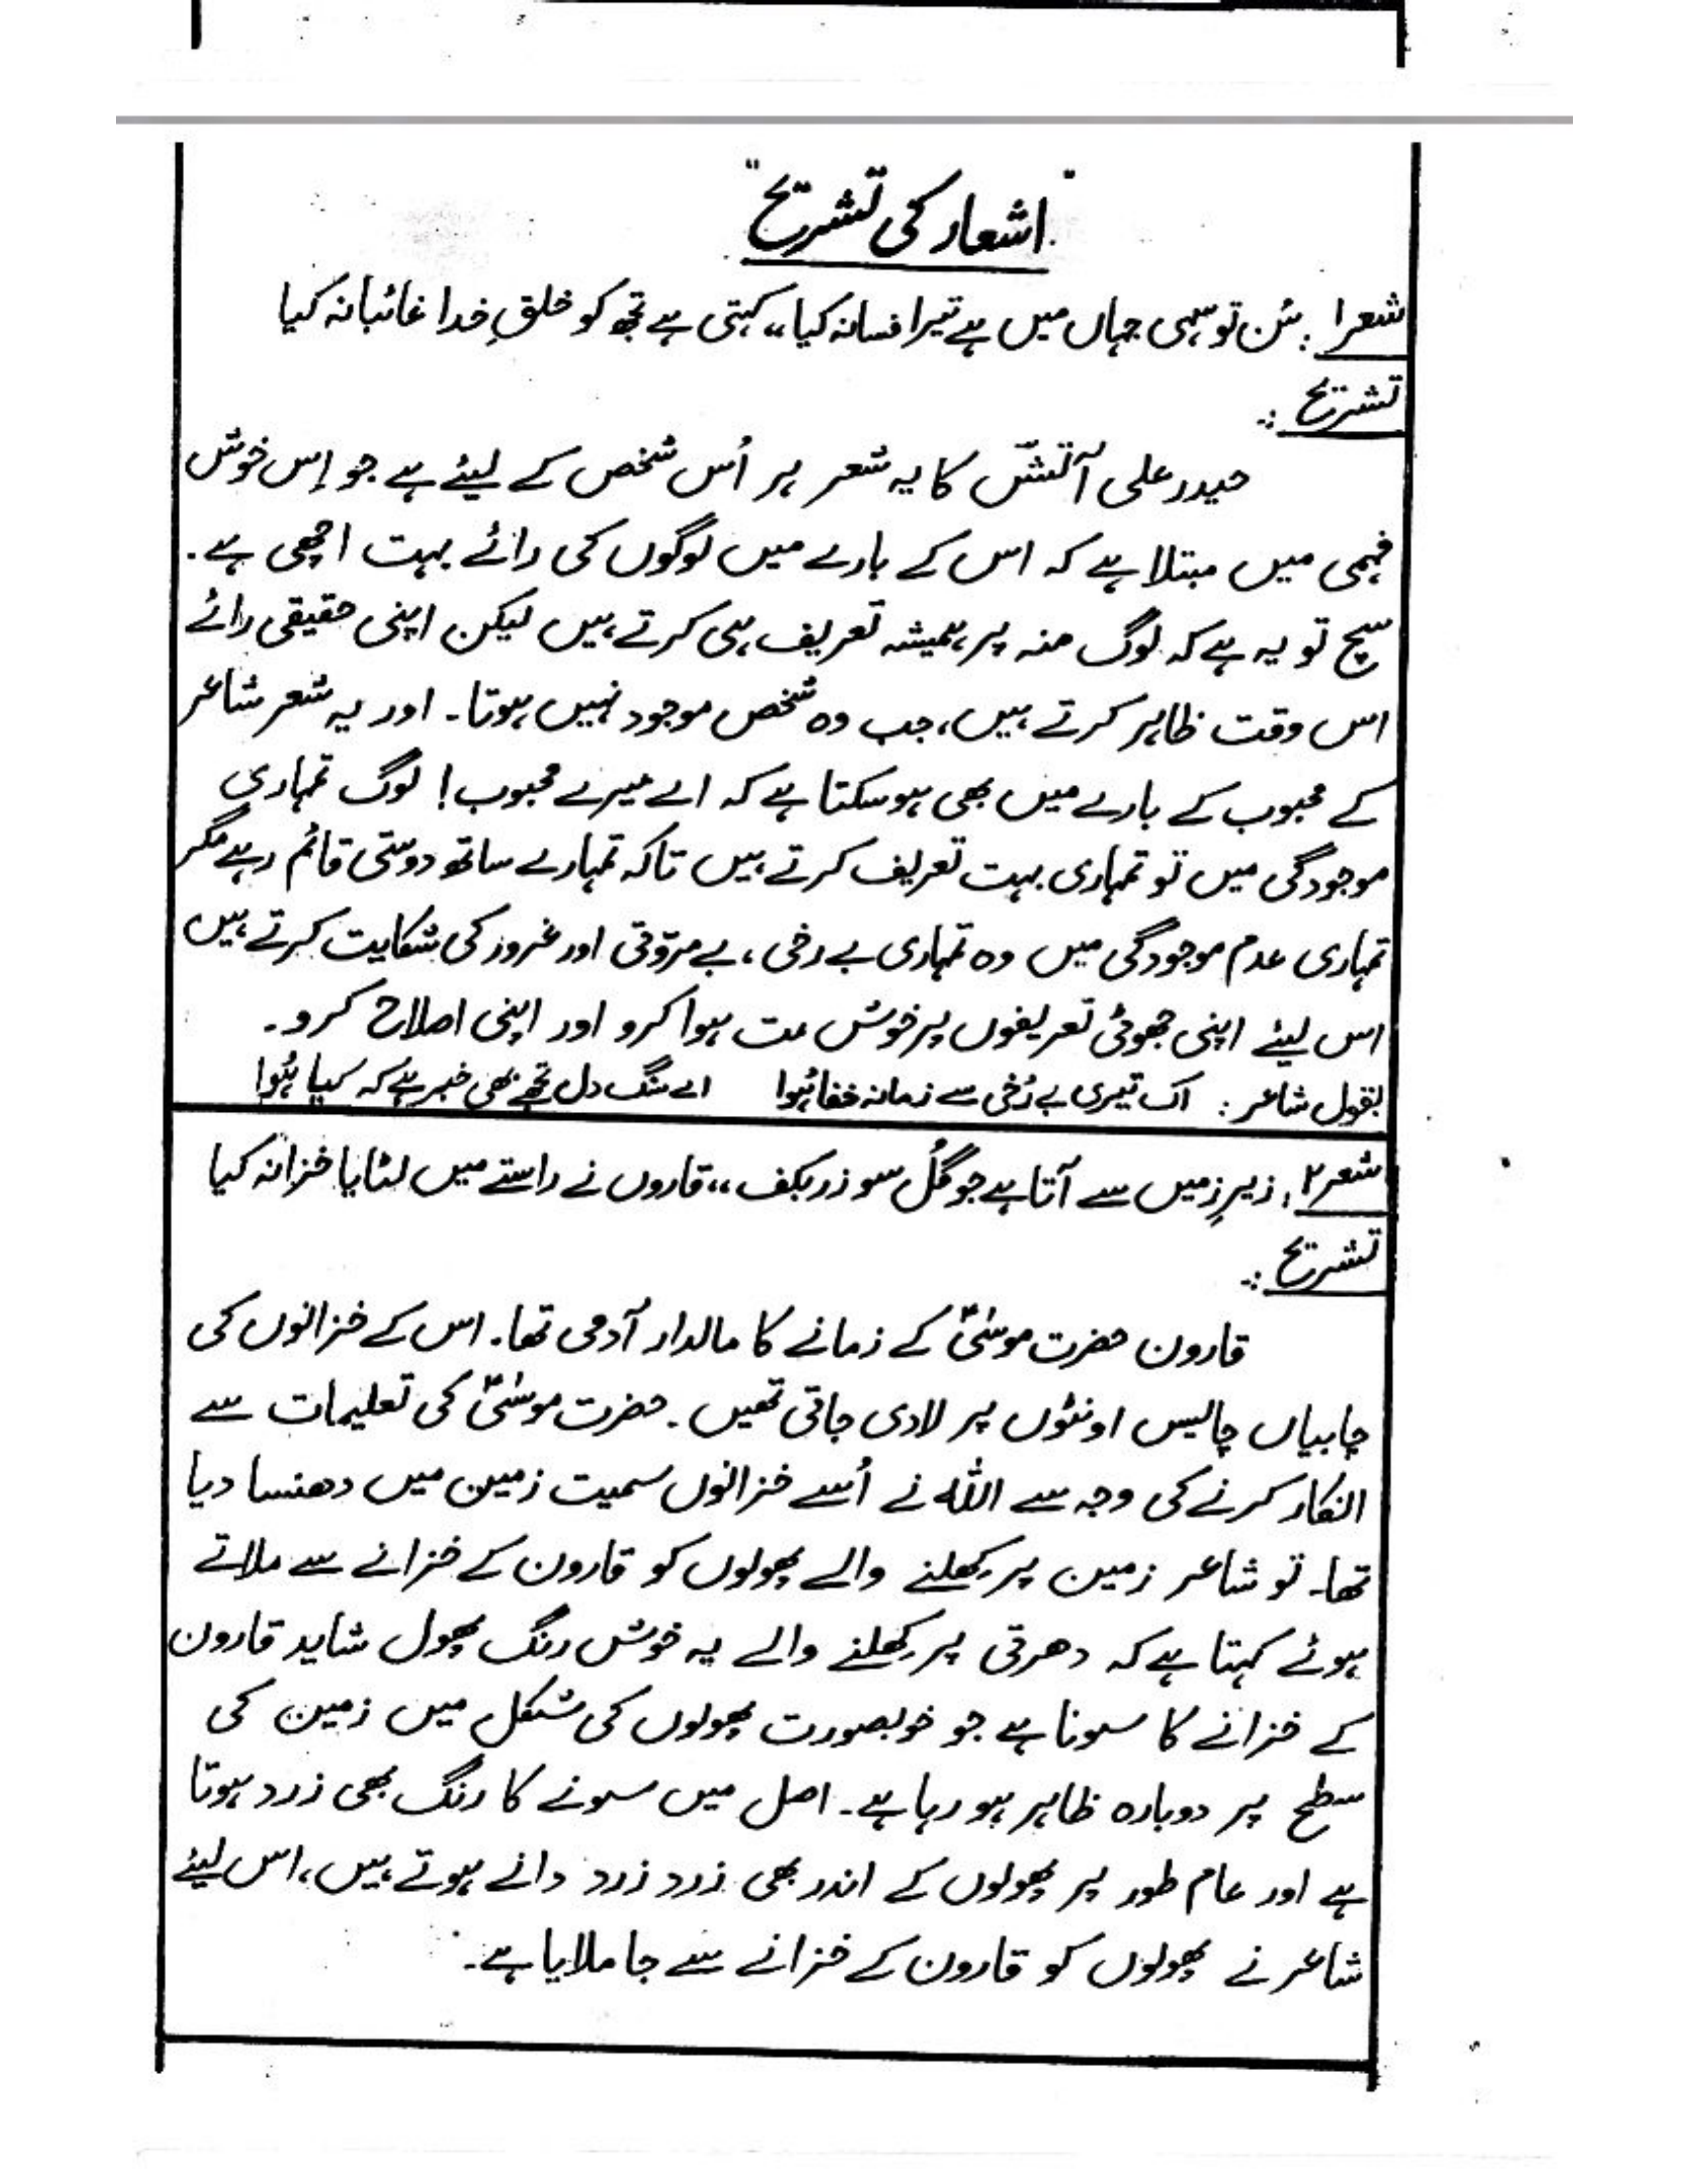 "اشعار کی تشریح"
شعر ۱: سُن تو سہی جہاں میں ہے تیرا فسانہ کیا،، کہتی ہے تجھ کو خلقِ خدا غائبانہ کیا
تشریح:
حیدر علی آتشؔ کا یہ شعر ہر اُس شخص کے لیئے ہے جو اِس خوش
فہمی میں مبتلا ہے کہ اس کے بارے میں لوگوں کی رائے بہت اچھی ہے۔
سچ تو یہ ہے کہ لوگ منہ پر ہمیشہ تعریف ہی کرتے ہیں لیکن اپنی حقیقی رائے
اس وقت ظاہر کرتے ہیں، جب وہ شخص موجود نہیں ہوتا۔ اور یہ شعر شاعر
کے محبوب کے بارے میں بھی ہوسکتا ہے کہ اے میرے محبوب! لوگ تمہاری
موجودگی میں تو تمہاری بہت تعریف کرتے ہیں تاکہ تمہارے ساتھ دوستی قائم رہے مگر
تمہاری عدم موجودگی میں وہ تمہاری بے رخی، بے مروّتی اور غرور کی شکایت کرتے ہیں
اس لیئے اپنی جھوٹی تعریفوں پر خوش مت ہوا کرو اور اپنی اصلاح کرو۔
بقول شاعر: اک تیری بے رُخی سے زمانہ خفا ہُوا اے سنگ دل تجھے بھی خبر ہے کہ کیا ہُوا
شعر ۲: زیرِ زمیں سے آتا ہے جو گُل سو زر بکف،، قاروں نے راستے میں لٹایا خزانہ کیا
تشریح:
قارون حضرت موسٰیؑ کے زمانے کا مالدار آدمی تھا۔ اس کے خزانوں کی
چابیاں چالیس اونٹوں پر لادی جاتی تھیں۔ حضرت موسٰیؑ کی تعلیمات سے
انکار کرنے کی وجہ سے اللہ نے اُسے خزانوں سمیت زمین میں دھنسا دیا
تھا۔ تو شاعر زمین پر کِھلنے والے پھولوں کو قارون کے خزانے سے ملاتے
ہوئے کہتا ہے کہ دھرتی پر کِھلنے والے یہ خوش رنگ پھول شاید قارون
کے خزانے کا سونا ہے جو خوبصورت پھولوں کی شکل میں زمین کی
سطح پر دوبارہ ظاہر ہو رہا ہے۔ اصل میں سونے کا رنگ بھی زرد ہوتا
ہے اور عام طور پر پھولوں کے اندر بھی زرد زرد دانے ہوتے ہیں، اس لیئے
شاعر نے پھولوں کو قارون کے خزانے سے جا ملایا ہے۔